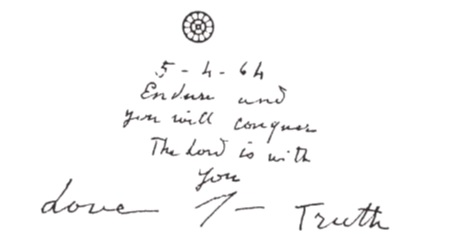 5-4-64
Endure and
you will conquer
The Lord is with
you
Love Truth